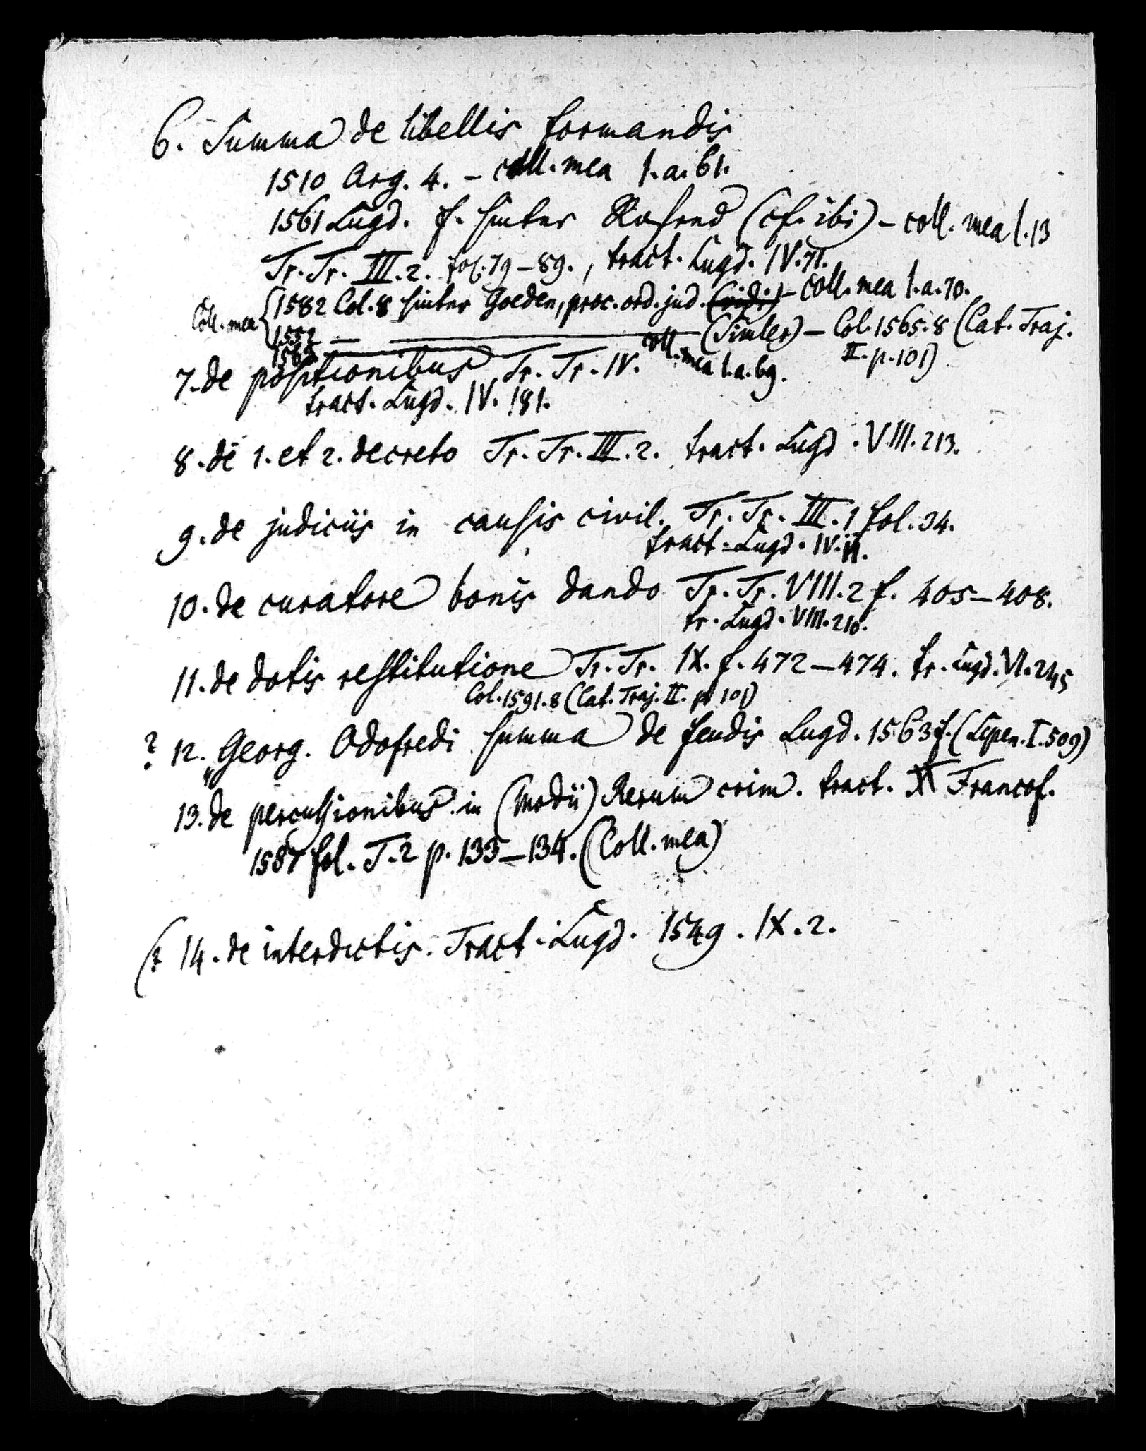 6. Summa de libellis formandis
1510 Arg. 4. – coll. mea l. a. 61.
1561 Lugd. f. hinter Rofred (cf. ibi) – coll. mea l. 13
Tr. Tr. III. 2. fol. 79–89., tract. Lugd. IV. 71.
Coll. mea { 1582 Col. 8 hinter Goeden, proc. ord. jud. (vid.) – coll. mea l. a. 70.
1552 — (Simler) – Col. 1565. 8 (Cat. Traj.
1565 coll. mea l. a. 69. II. p. 101)
7. de positionibus Tr. Tr. IV.
tract. Lugd. IV. 181.
8. de 1. et 2. decreto Tr. Tr. III. 2. tract. Lugd. VIII. 213.
9. de judiciis in causis civil. Tr. Tr. III. 1 fol. 34.
tract. Lugd. IV. 11.
10. de curatore bonis dando Tr. Tr. VIII. 2 f. 405–408.
tr. Lugd. VIII. 210.
11. de dotis restitutione Tr. Tr. IX. f. 472–474. tr. Lugd. VI. 245
Col. 1591. 8 (Cat. Traj. II. p. 101)
? 12. Georg. Odofredi summa de feudis Lugd. 1563 f. (Lipen. I. 509)
13. de percussionibus in (Modii) Rerum crim. tract. Francof.
1587 fol. T. 2 p. 133–134. (Coll. mea)
(? 14. de interdictis. Tract. Lugd. 1549. IX. 2.